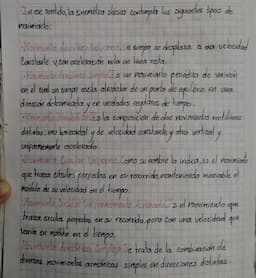 En ese sentido, la cinemática clásica contempla los siguientes tipos de
movimiento:
Movimiento Rectilíneo Uniforme: Un cuerpo se desplaza a una velocidad
constante y con aceleración nula en línea recta.
Movimiento Armónico Simple: Es un movimiento periódico de vaivén
en el cual un cuerpo oscila alrededor de un punto de equilibrio en una
dirección determinada y en unidades regulares de tiempo.
Movimiento: Es la composición de dos movimientos rectilíneos
distintos: uno horizontal y de velocidad constante, y otro vertical y
uniformemente acelerado.
Movimiento Circular Uniforme: Como su nombre lo indica, es el movimiento
que traza círculos perfectos en su recorrido, manteniendo invariable el
módulo de su velocidad en el tiempo.
Movimiento Circular Uniformemente Acelerado: Es el movimiento que
traza círculos perfectos en su recorrido, pero con una velocidad que
varía en módulo en el tiempo.
Movimiento Armónico Complejo: Se trata de la combinación de
diversos movimientos armónicos simples, en direcciones distintas.